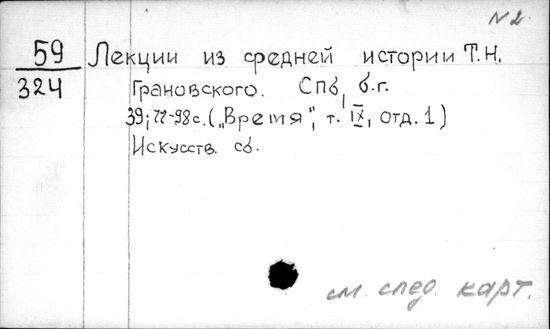 N 2
59
324
Лекции из средней истории Т.Н.
Грановского. СПб, б.г.
39; 77-98с. („Время", т. IX, отд. 1)
Искусств. сб.
см. след. карт.